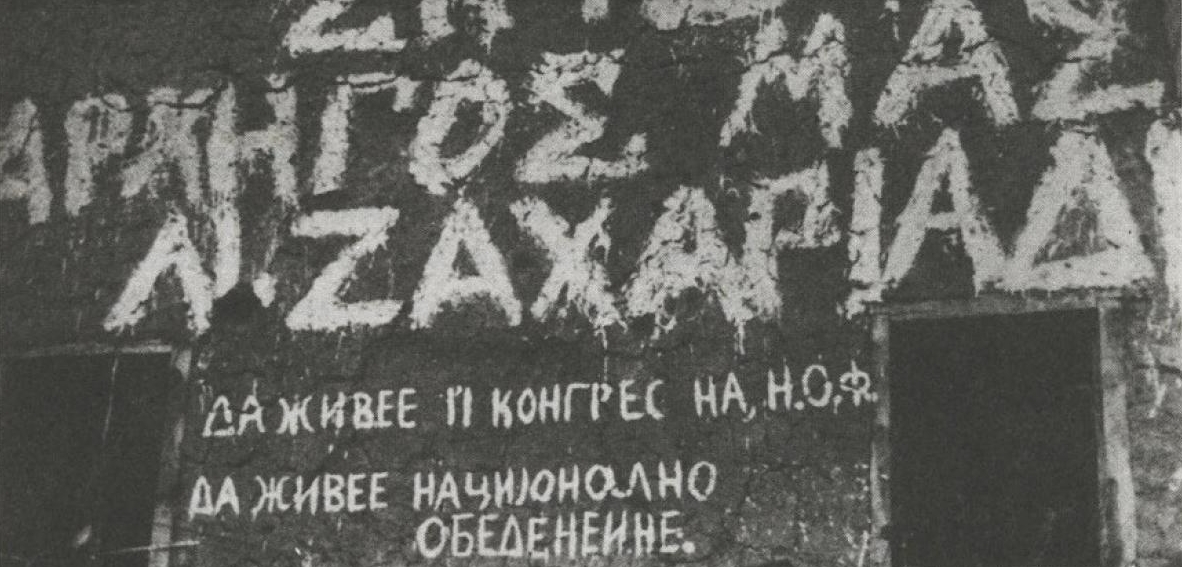 ΑΡΧΗΓΟΣ ΜΑΣ
Ν. ΖΑΧΑΡΙΑΔΗ
ДА ЖИВЕЕ II КОНГРЕС НА, Н.О.Ф.
ДА ЖИВЕЕ НАЦИЈОНАЛНО
ОБЕДЕНЕИНЕ.